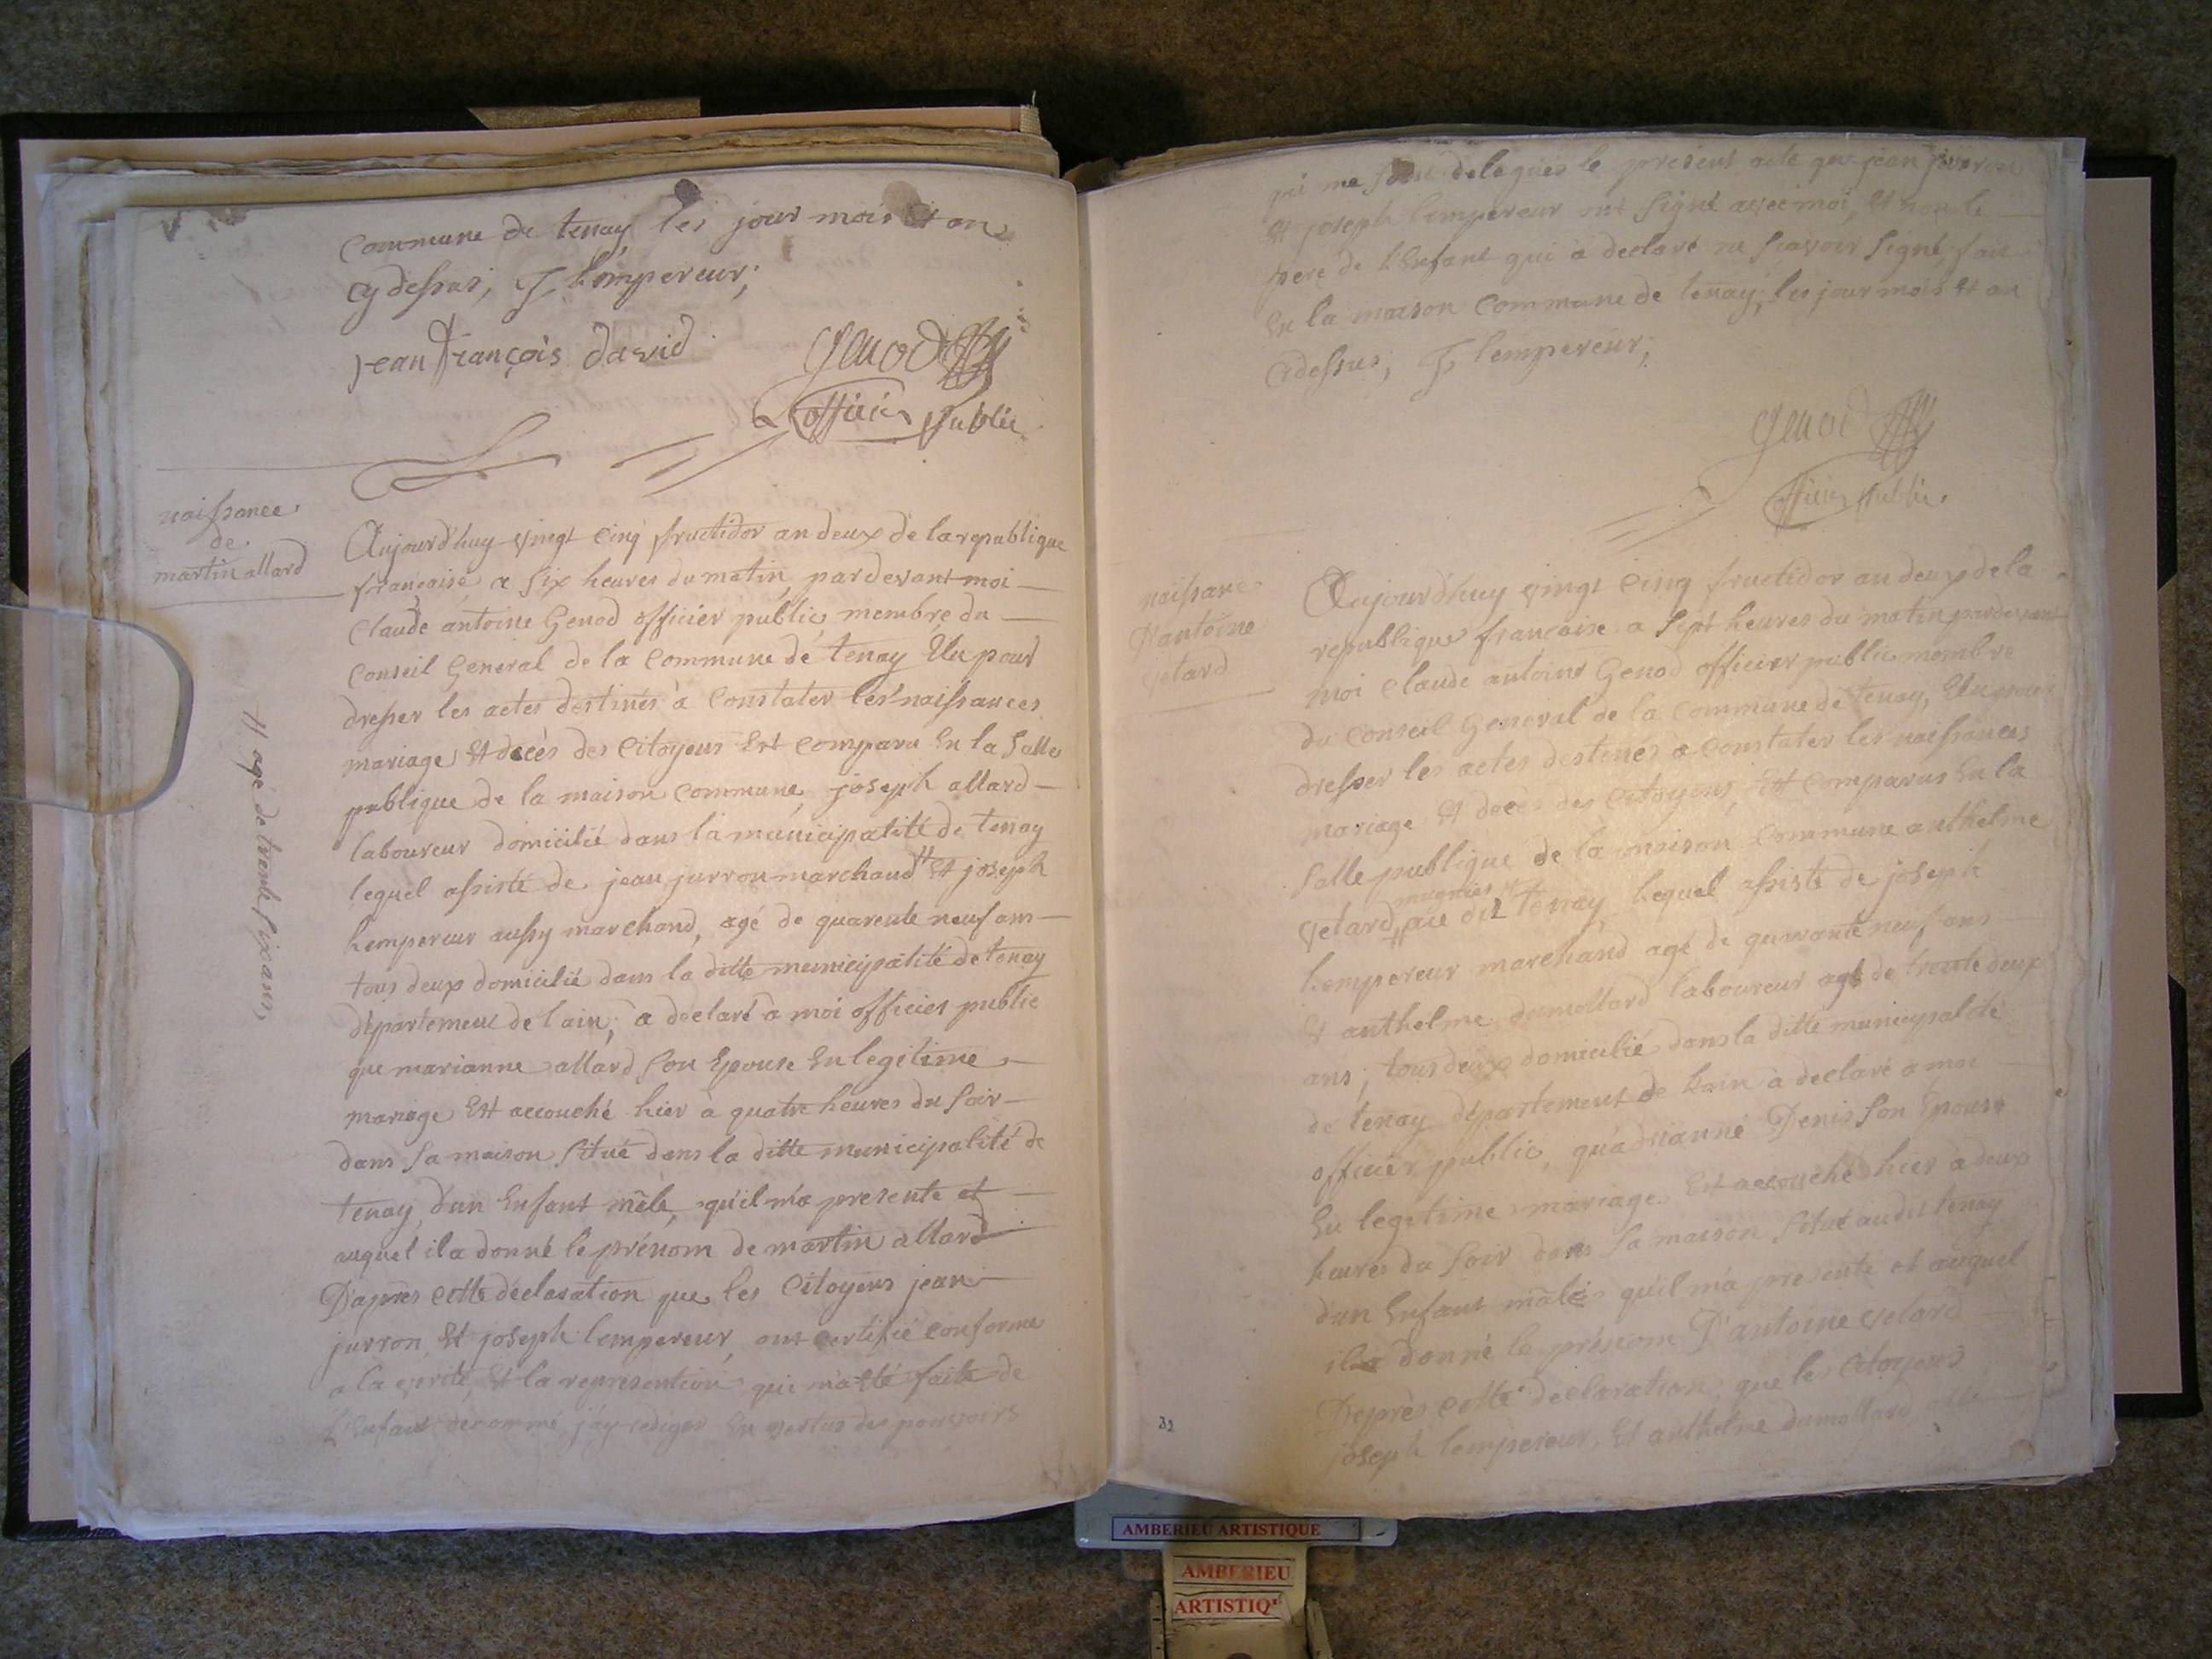 commune de tenay les jour mois Et an
cy dessus, J. Lempereur;
jean françois david
Genod
officier public
naissance
de
martin allard
Aujourd'huy vingt cinq fructidor an deux de la republique
francaise, a six heures du matin, pardevant moi
Claude antoine Genod officier public membre du
Conseil General de la Commune de tenay Elu pour
dresser les actes destinés à Constater les naissances
mariage Et decès des Citoyens Est comparu En la Salle
publique de la maison Commune, joseph allard
laboureur domicilié dans la municipalité de tenay
lequel assisté de jean jurron marchand # Et joseph
Lempereur aussy marchand, agé de quarente neuf ans
tous deux domicilié dans la ditte municipalité de tenay
département de lain; à declaré a moi officier public
que marianne allard Son Epouse En legitime
mariage Est accouché hier à quatre heures du Soir
dans Sa maison Situé dans la ditte municipalité de
tenay, d'un Enfant mâle, qu'il ma presente et
auquel il a donné le prénom de martin allard
D'après cette déclaration que les Citoyens jean
jurron, Et joseph lempereur, ont certifié conforme
a la verité, Et la representtion qui m'a eté faite de
l'Enfant denommé, j'ay rediger En vertus des pouvoirs
# agé de trente six ans,
qui me Sont delegués le present acte que jean jurron
Et joseph lempereur ont Signé avec moi, Et non le
pere de l'Enfant qui à declaré ne Scavoir Signé, fait
En la maison Commune de tenay, les jour mois Et an
Cydessus; J. lempereur;
Genod
officier public.
naissance
D'antoine
vetard
Aujourd'huy vingt cinq fructidor an deux de la
republique francaise a Sept heures du matin pardevant
moi Claude antoine Genod officier public membre
du Conseil General de la Commune de tenay, Elu pour
dresser les actes destinés a Constater les naissances
mariage Et decès des Citoyens, Est Comparus En la
Salle publique de la maison Commune anthelme
vetard dit tenay, lequel assisté de joseph
Lempereur marchand agé de quarante neuf ans
Et anthelme dumollard laboureur agé de trente deux
ans; tous deux domicilié dans la ditte municipalité
de tenay département de Lain à declaré a moi
officier public, qu'adrianne Denis Son Epouse
En legitime mariage Est accouché hier a deux
heures du Soir dans Sa maison Situé audit tenay
d'un Enfant mâle qu'il m'a presenté et auquel
il a donné le prénom D'antoine vetard
D'après cette déclaration, que les Citoyens
joseph lempereur, Et anthelme dumollard
32
AMBERIEU ARTISTIQUE
AMBERIEU
ARTISTIQ